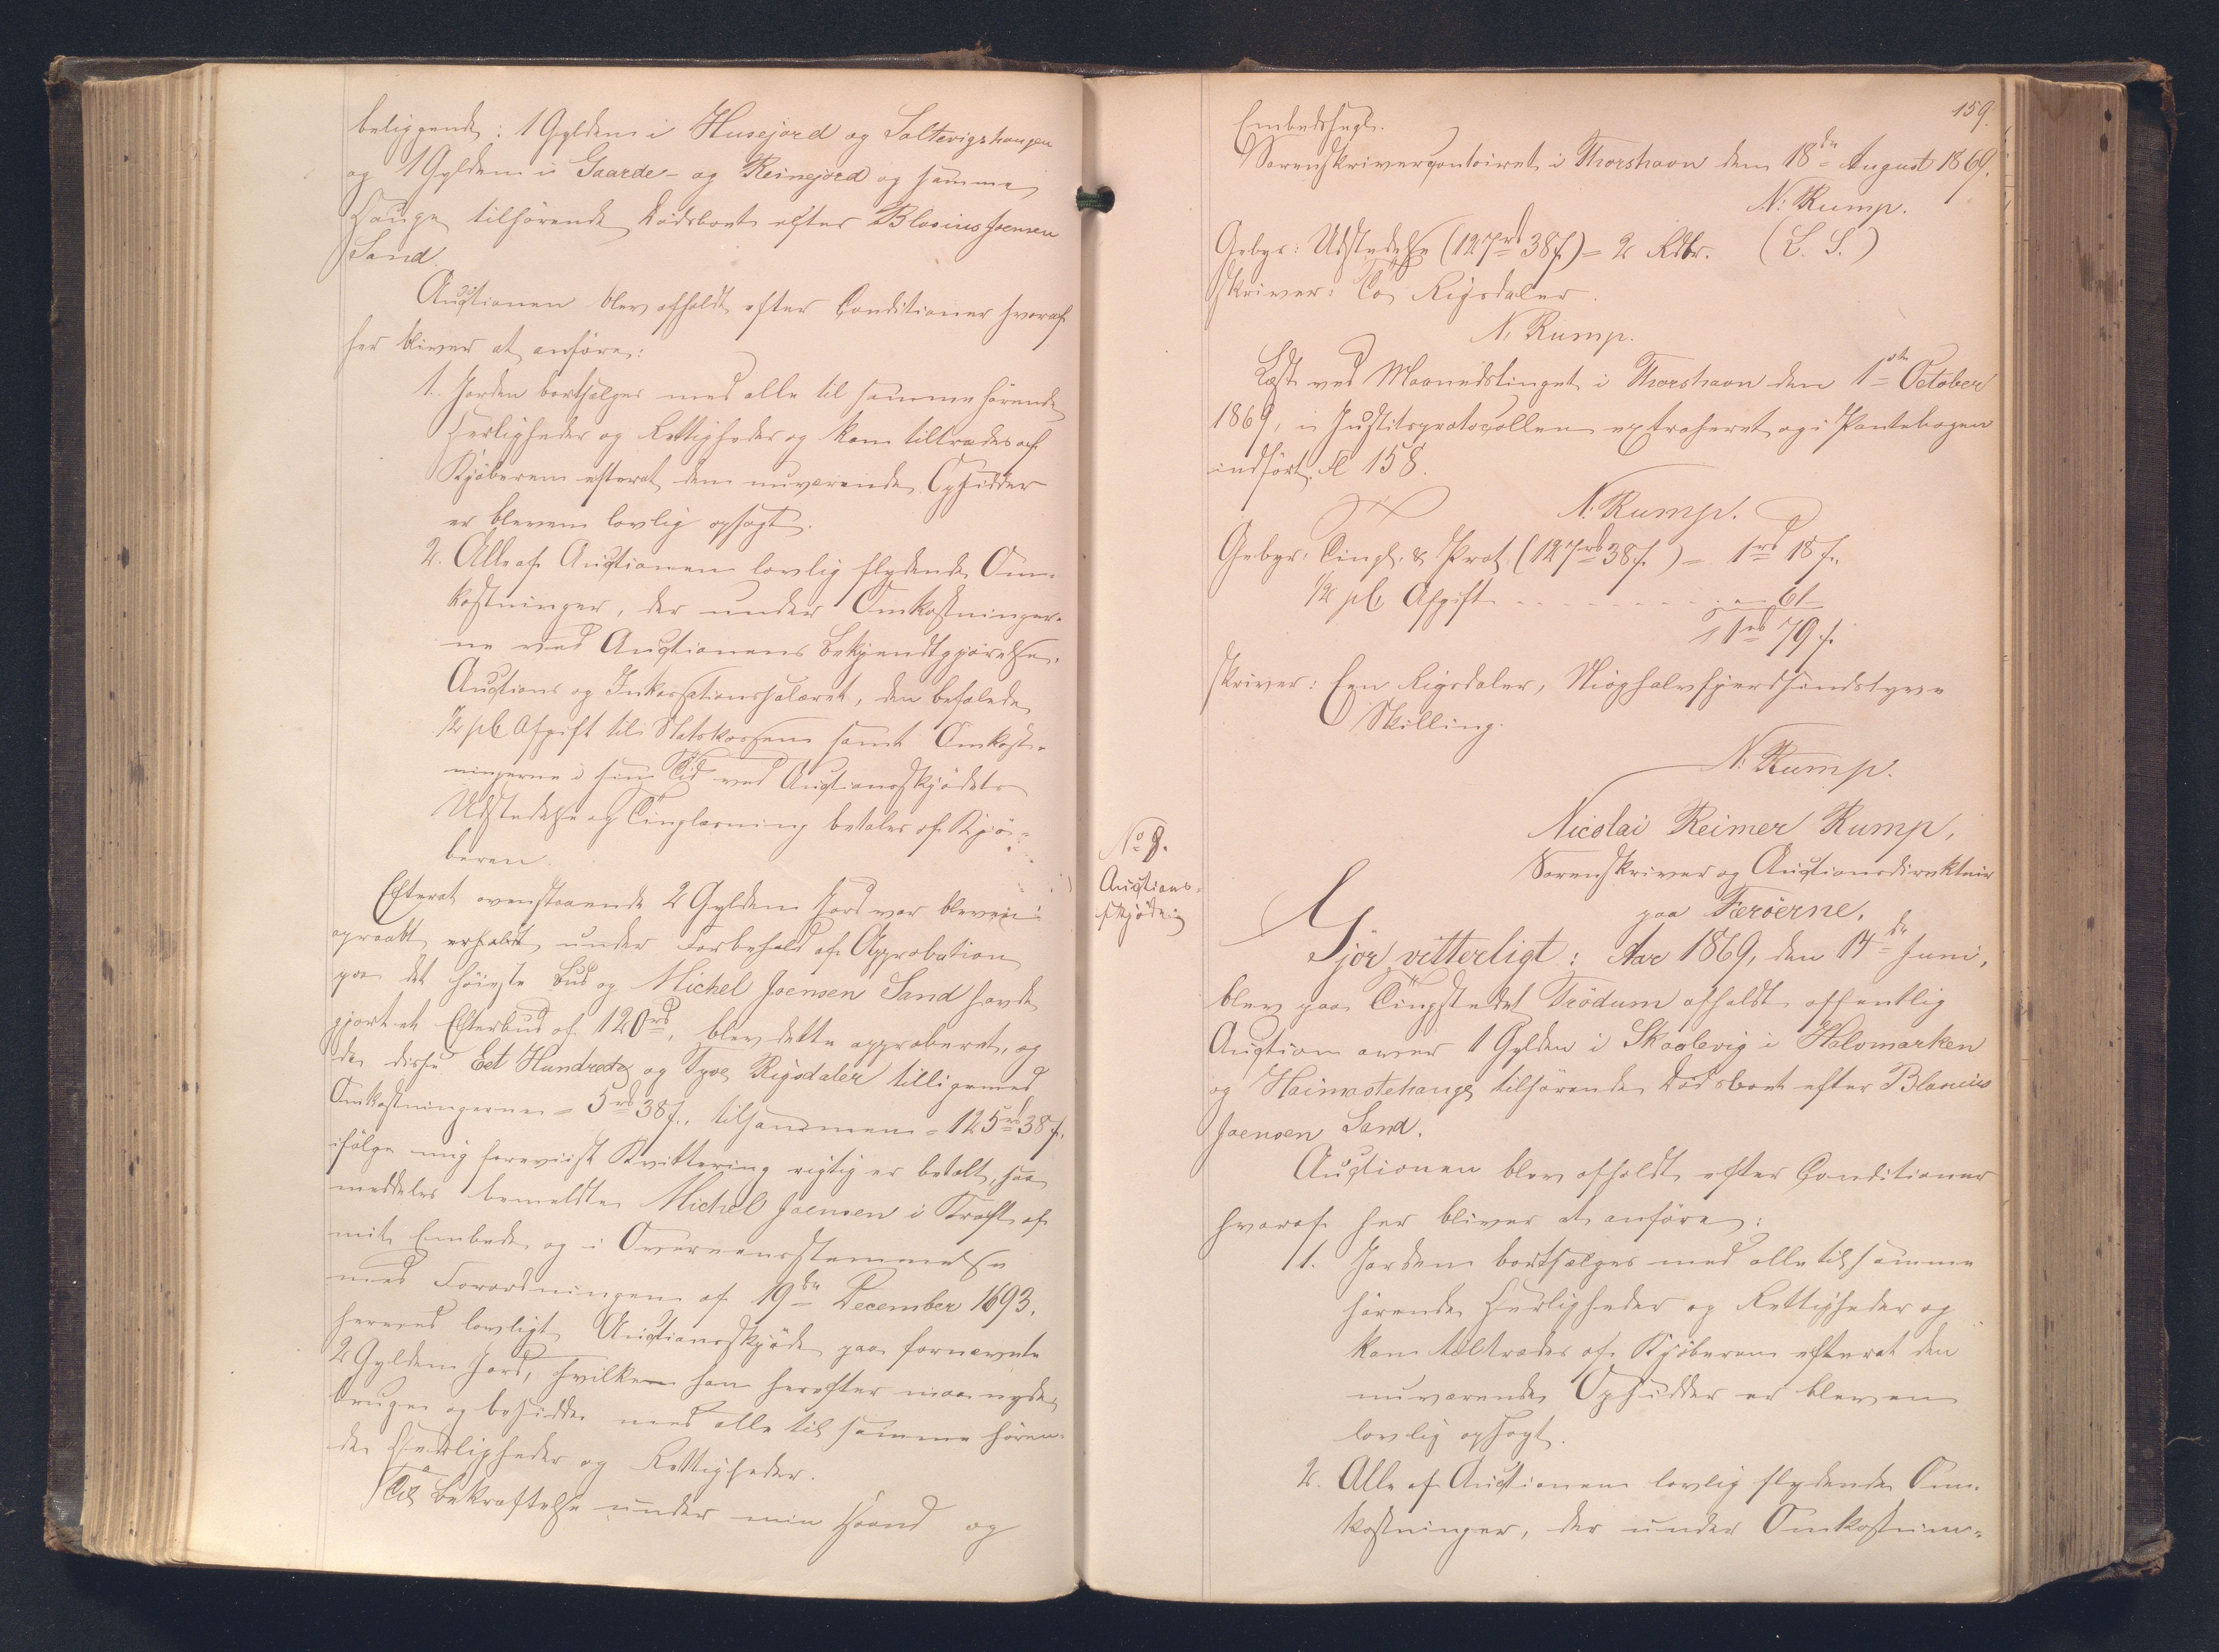 beliggende: 1 Gylden i Husejord og Soltevigshaugen
og 1 Gylden i Gaarde- og Reinejord og samme
Hauge tilhørende Dødsboet efter Blasius Joensen
Sand.
Auctionen blev afholdt efter Conditioner hvoraf
her bliver at anføre:
1. Jorden bortsælges med alle til samme hørende
Herligheder og Rettigheder og kan tiltrædes af
Kjøberen efterat den nuværende Opsidder
er bleven lovlig opsagt.
2. Alle af Auctionen lovlig flydende Om-
kostninger, der under Omkostninger-
ne ved Auctionens Bekjendtgjørelse,
Auctions og Inkassationssalairet, den befalede
1/2 pCt Afgift til Statskassen samt Omkost-
ningerne i sin Tid ved Auctionsskjødets
Udstedelse og Tinglæsning betales af Kjø-
beren.
Efterat ovenstaaende 2 Gylden Jord var bleven
opraabt, erholdt under Forbehold af Approbation
paa det høieste Bud og Michel Joensen Sand havde
gjort et Efterbud af 120 rd, blev dette approberet, og
da disse Eet Hundrede og Tyve Rigsdaler tilligemed
Omkostningerne = 5 rd 38 s., tilsammen = 125 rd 38 s.
ifølge mig foreviist Kvittering rigtig er betalt, saa
meddeles bemeldte Michel Joensen i Kraft af
mit Embede og i Overeensstemmelse
med Forordningen af 19de December 1693,
herved lovligt Auctionsskjøde paa fornævnte
2 Gylden Jord, hvilken han herefter maa nyde,
bruge og besidde med alle til samme høren-
de Herligheder og Rettigheder.
Til Bekræftelse under min Haand og
159.
Embedssegl.
Sorenskrivercontoiret i Thorshavn den 18de August 1869.
N. Rump.
Gebyr: Udstedelse (127 rd 38 s.) = 2 Rdlr. (L. S.)
skriver: To Rigsdaler.
N. Rump.
Læst ved Maanedstinget i Thorshavn den 1ste October
1869, i Justitsprotocollen extraheret og i Pantebogen
indført Fol 158.
N. Rump.
Gebyr: Tingl. & Prot. (127 rd 38 s.) = 1 rd 18 s.
1/2 pCt Afgift - - - - - - - " - 61 -
1 rd 79 s.
skriver: Een Rigsdaler, Nioghalvfjerdsindstyve
Skilling.
N. Rump.
No 8.
Auctions-
skjøde
Nicolai Reimer Rump,
Sorenskriver og Auctionsdirekteur
paa Færøerne,
Gjør vitterligt: Aar 1869, den 14de Juni,
blev paa Tingstedet Trødum afholdt offentlig
Auction over 1 Gylden i Skaalevig i Halvmarken
og Haimastehauge tilhørende Dødsboet efter Blasius
Joensen Sand.
Auctionen blev afholdt efter Conditioner
hvoraf her bliver at anføre:
1. Jorden bortsælges med alle til samme
hørende Herligheder og Rettigheder og
kan tiltrædes af Kjøberen efterat den
nuværende Opsidder er bleven
lovlig opsagt.
2. Alle af Auctionen lovlig flydende Om-
kostninger, der under Omkostnin-